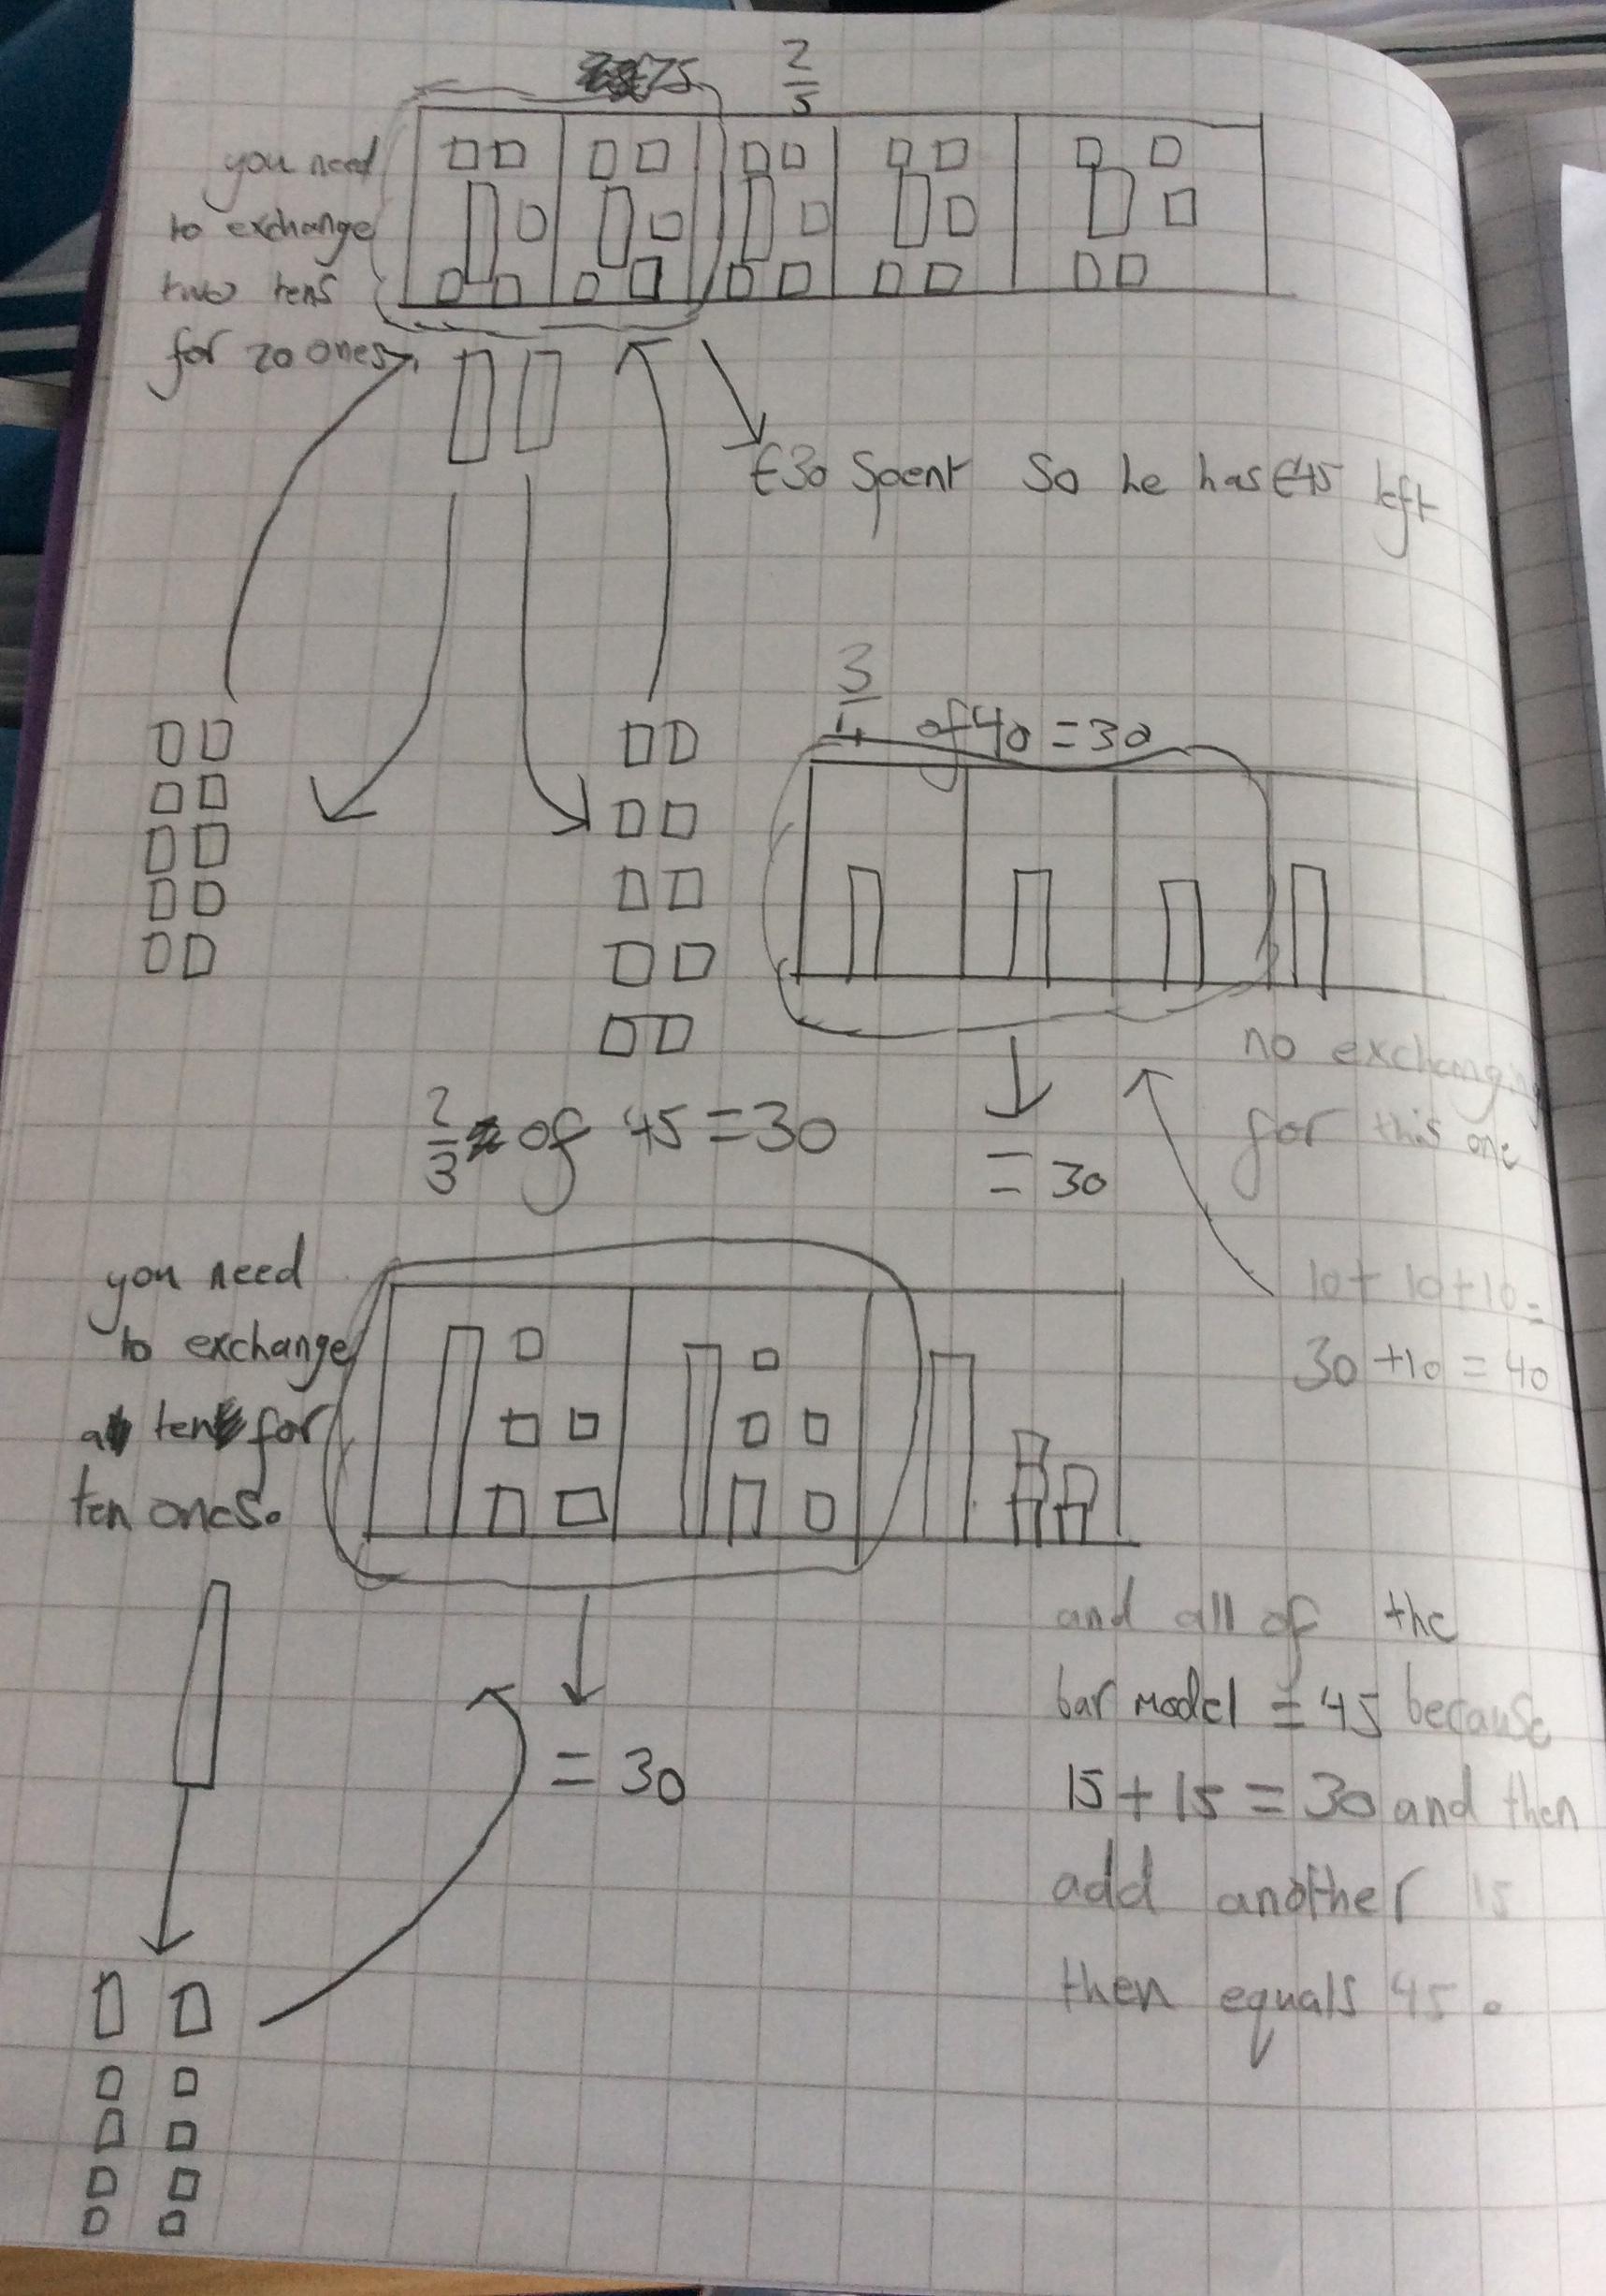 75
2
5
you need
to exchange
two tens
for 20 ones
£30 Spent So he has £45 left
3
4 of 40 = 30
no exchanging
for this one
= 30
10 + 10 + 10 =
30 + 10 = 40
2
3 of 45 = 30
you need
to exchange
a ten for
ten ones.
= 30
and all of the
bar model = 45 because
15 + 15 = 30 and then
add another 15
then equals 45.